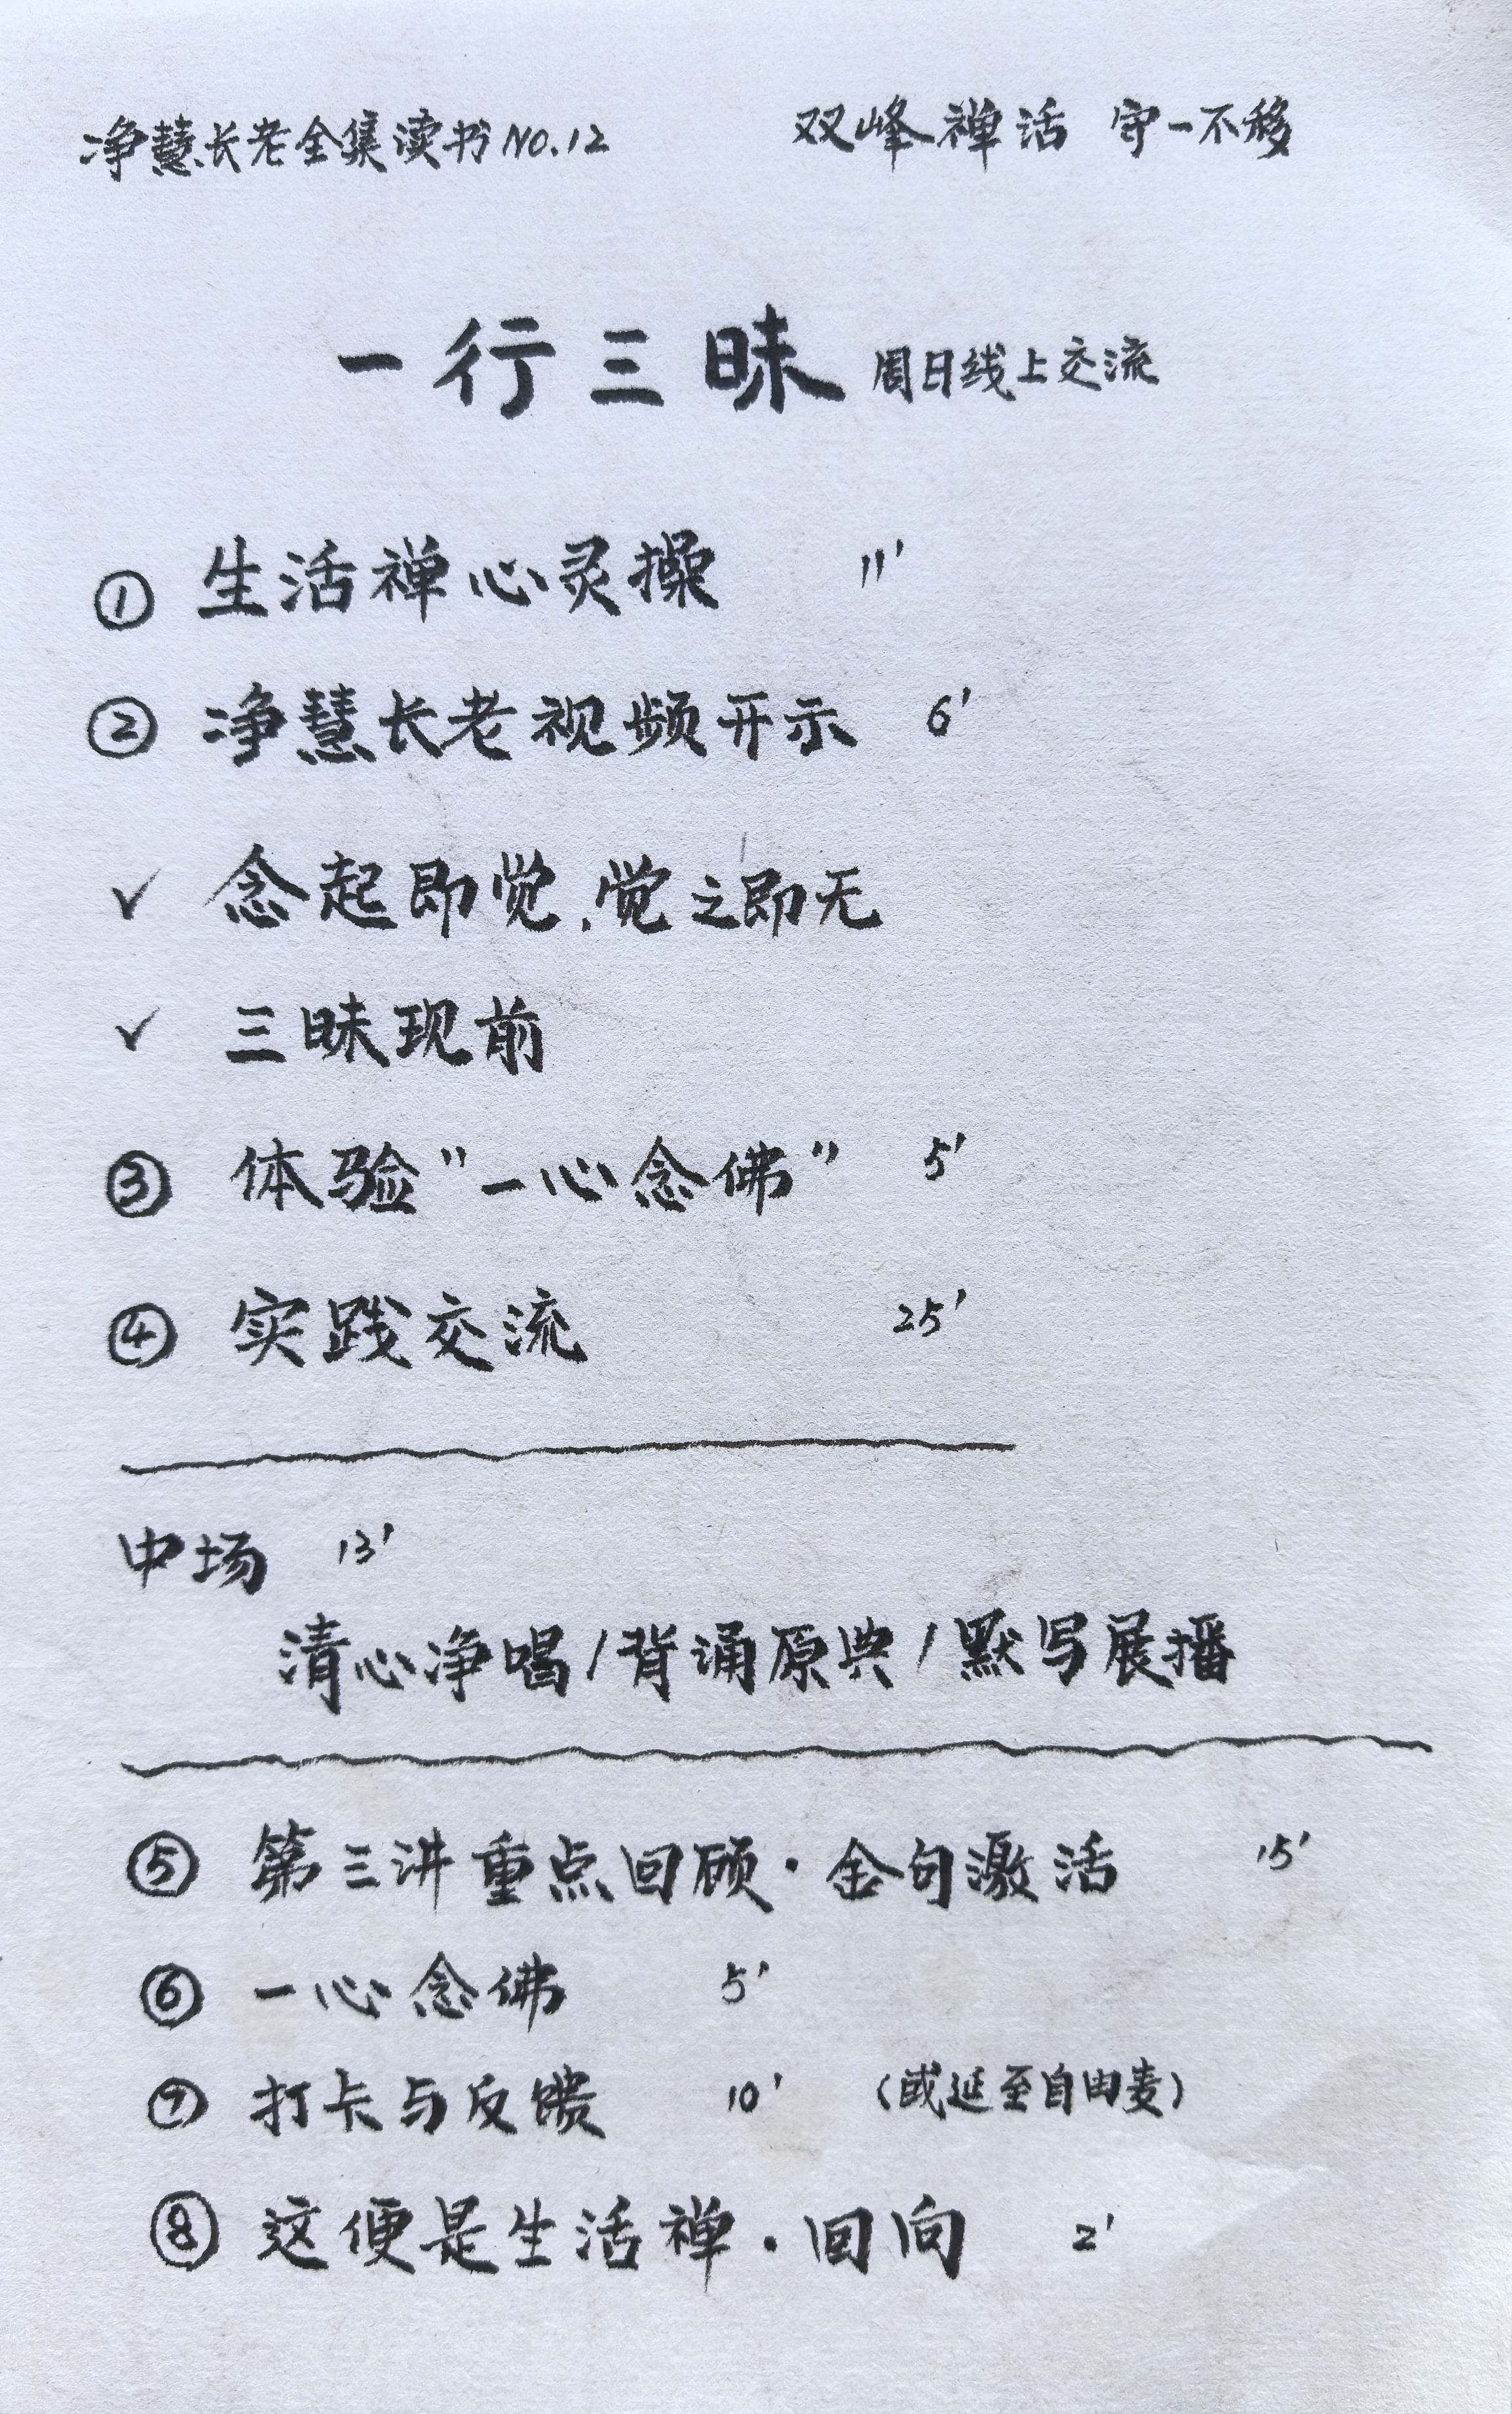 净慧长老全集读书NO.12 双峰禅活 守一不移
一行三昧 周日线上交流
① 生活禅心灵操 11'
② 净慧长老视频开示 6'
✓ 念起即觉.觉之即无
✓ 三昧现前
③ 体验"一心念佛" 5'
④ 实践交流 25'
中场 13'
清心净唱/背诵原典/默写展播
⑤ 第三讲重点回顾·金句激活 15'
⑥ 一心念佛 5'
⑦ 打卡与反馈 10' (或延至自由麦)
⑧ 这便是生活禅·回向 2'